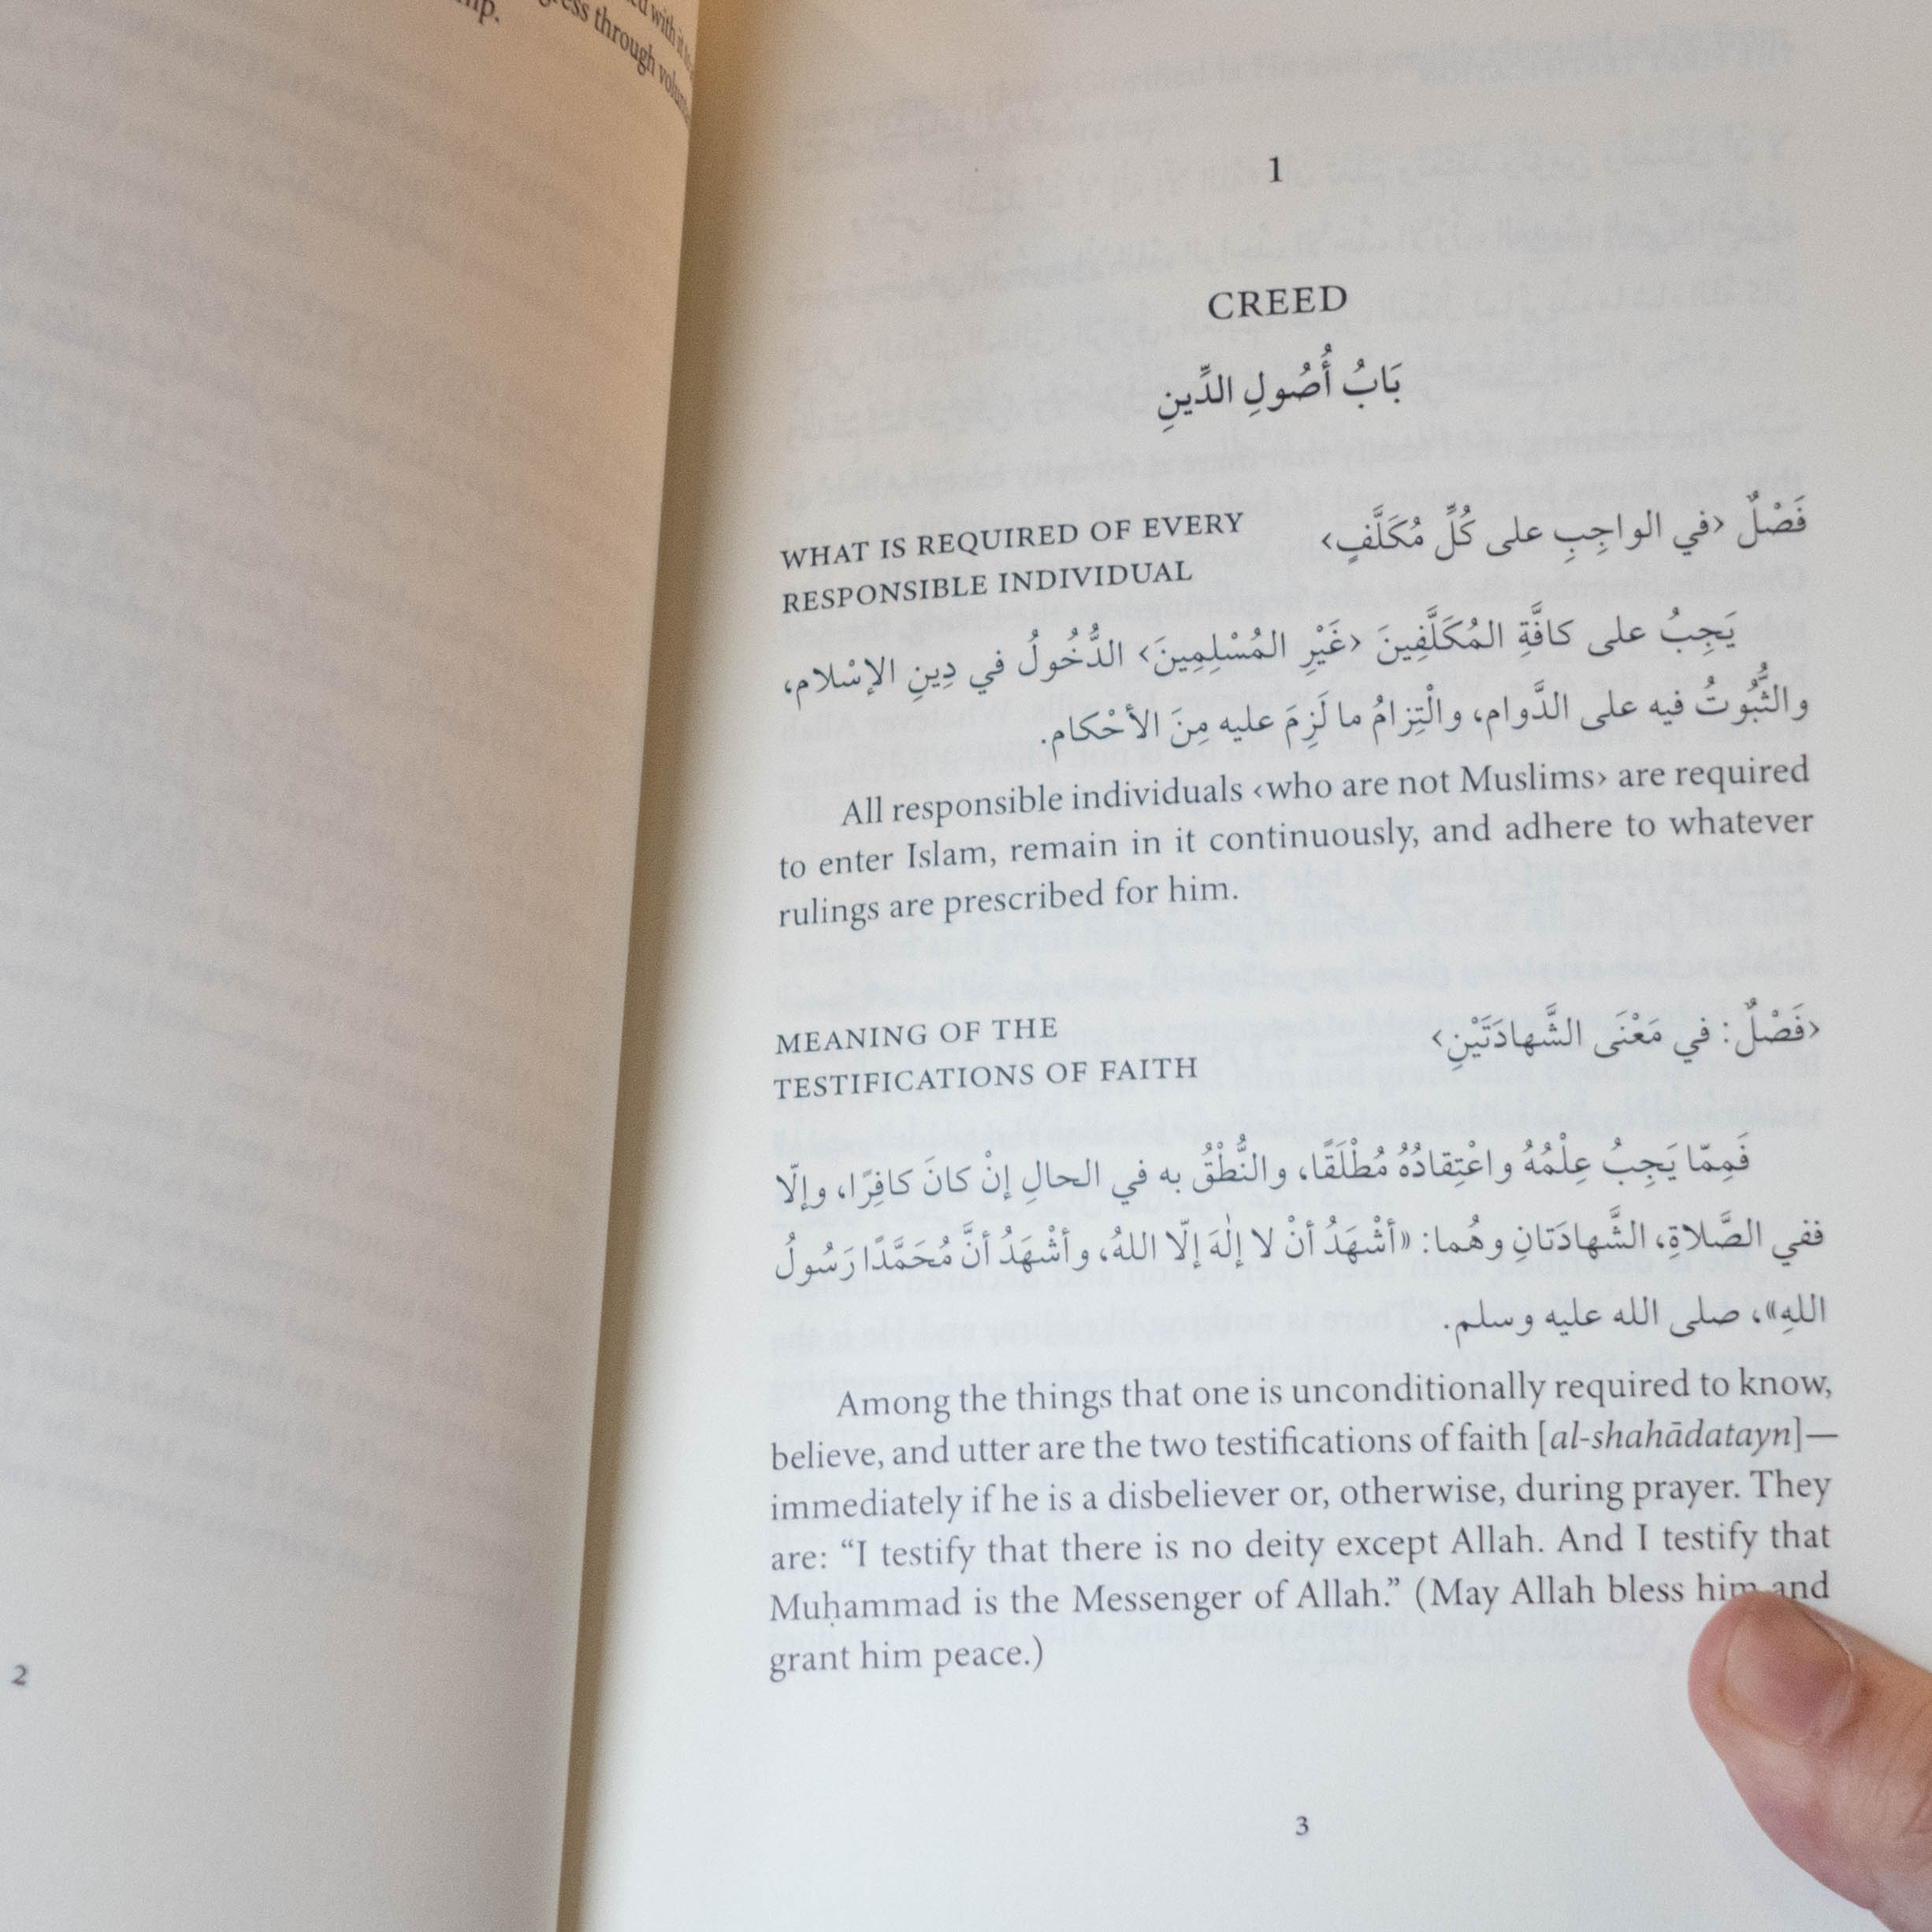 ress through volum
2
1
CREED
بَابُ أُصُولِ الدِّينِ
WHAT IS REQUIRED OF EVERY
RESPONSIBLE INDIVIDUAL
فَصْلٌ ‹في الواجِبِ على كُلِّ مُكَلَّفٍ›
يَجِبُ على كافَّةِ المُكَلَّفِينَ ‹غَيْرِ المُسْلِمِينَ› الدُّخُولُ في دِينِ الإسْلام،
والثُّبُوتُ فيه على الدَّوام، والْتِزامُ ما لَزِمَ عليه مِنَ الأحْكام.
All responsible individuals ‹who are not Muslims› are required
to enter Islam, remain in it continuously, and adhere to whatever
rulings are prescribed for him.
MEANING OF THE
TESTIFICATIONS OF FAITH
‹فَصْلٌ: في مَعْنَى الشَّهادَتَيْنِ›
فَمِمّا يَجِبُ عِلْمُهُ واعْتِقادُهُ مُطْلَقًا، والنُّطْقُ به في الحالِ إنْ كانَ كافِرًا، وإلّا
ففي الصَّلاةِ، الشَّهادَتانِ وهُما: «أشْهَدُ أنْ لا إلٰهَ إلّا اللهُ، وأشْهَدُ أنَّ مُحَمَّدًا رَسُولُ
اللهِ»، صلى الله عليه وسلم.
Among the things that one is unconditionally required to know,
believe, and utter are the two testifications of faith [al-shahādatayn]—
immediately if he is a disbeliever or, otherwise, during prayer. They
are: “I testify that there is no deity except Allah. And I testify that
Muḥammad is the Messenger of Allah.” (May Allah bless him and
grant him peace.)
3